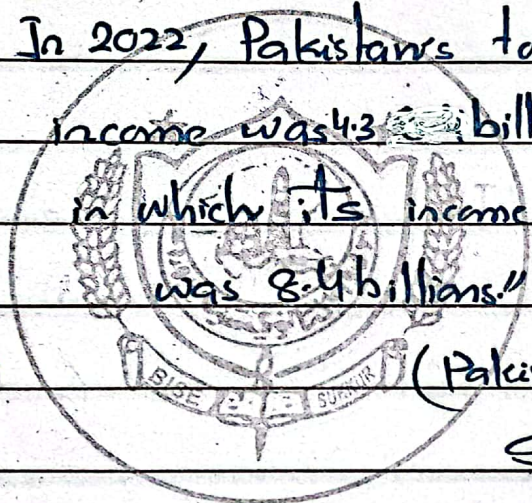 In 2022, Pakistan's to
income was 4.3 bill
in which its income
was 8.4 billions."
BISE SUKKUR
(Paki
S